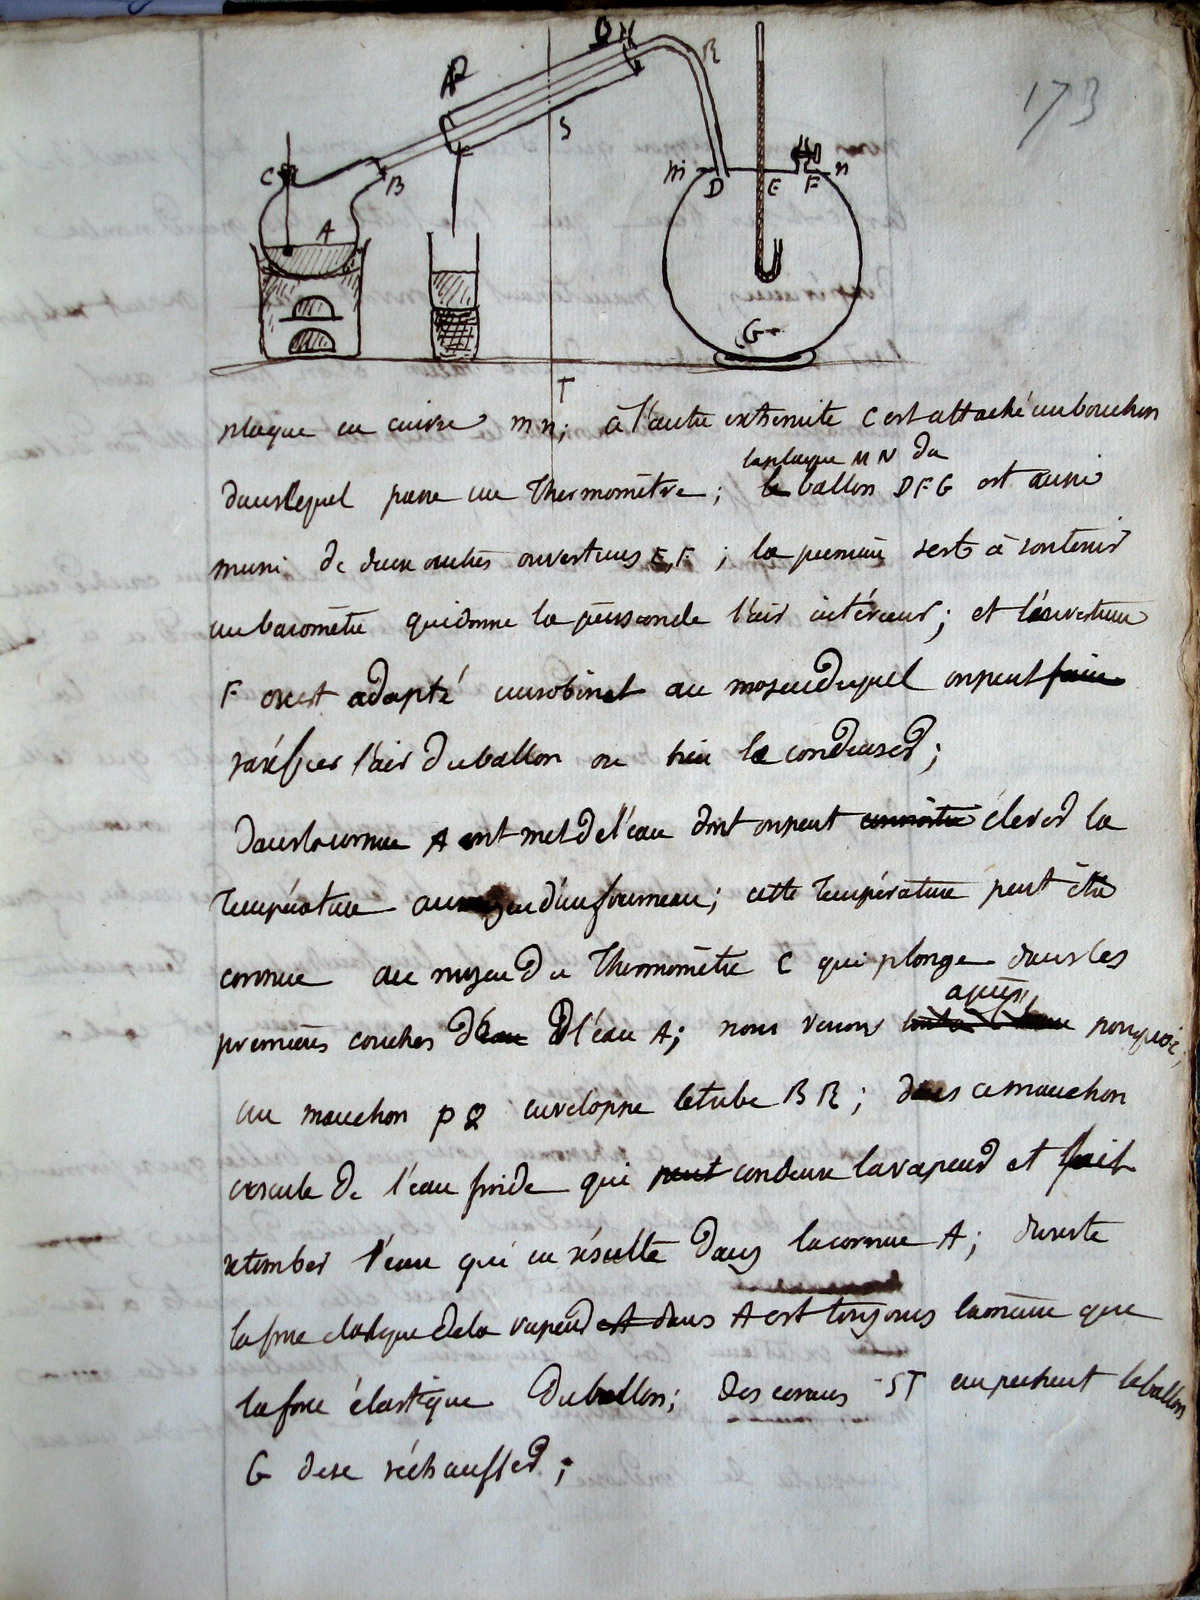 173
P Q H R
S
C B A
m D E F n
G
T
plaque en cuivre mn; à l'autre extremité C est attaché un bouchon
dans lequel passe un Thermomètre; le ballon DFG est aussi
la plaque MN du
muni de deux autres ouvertures E, F; la premiere sert à soutenir
un baromètre qui donne la pression de l'air intérieur; et l'ouverture
F on est adapté un robinet au moyen duquel on peut faire
raréfier l'air du ballon ou bien le condenser;
Dans la cornue A ont met de l'eau dont on peut connoitre élever la
Température au moyen d'un fourneau; cette Température peut être
connue au moyen du Thermomètre C qui plonge dans les
premières couches d'eau de l'eau A; nous verrons pourquoi;
après
un manchon PQ enveloppe le tube BR; dans ce manchon
circule de l'eau froide qui peut condense la vapeur et fait
retomber l'eau qui en résulte dans la cornue A; du reste
la force elastique de la vapeur A dans A est toujours la même que
la force élastique du ballon; des ecrans ST empechent le ballon
G de se réchauffer;